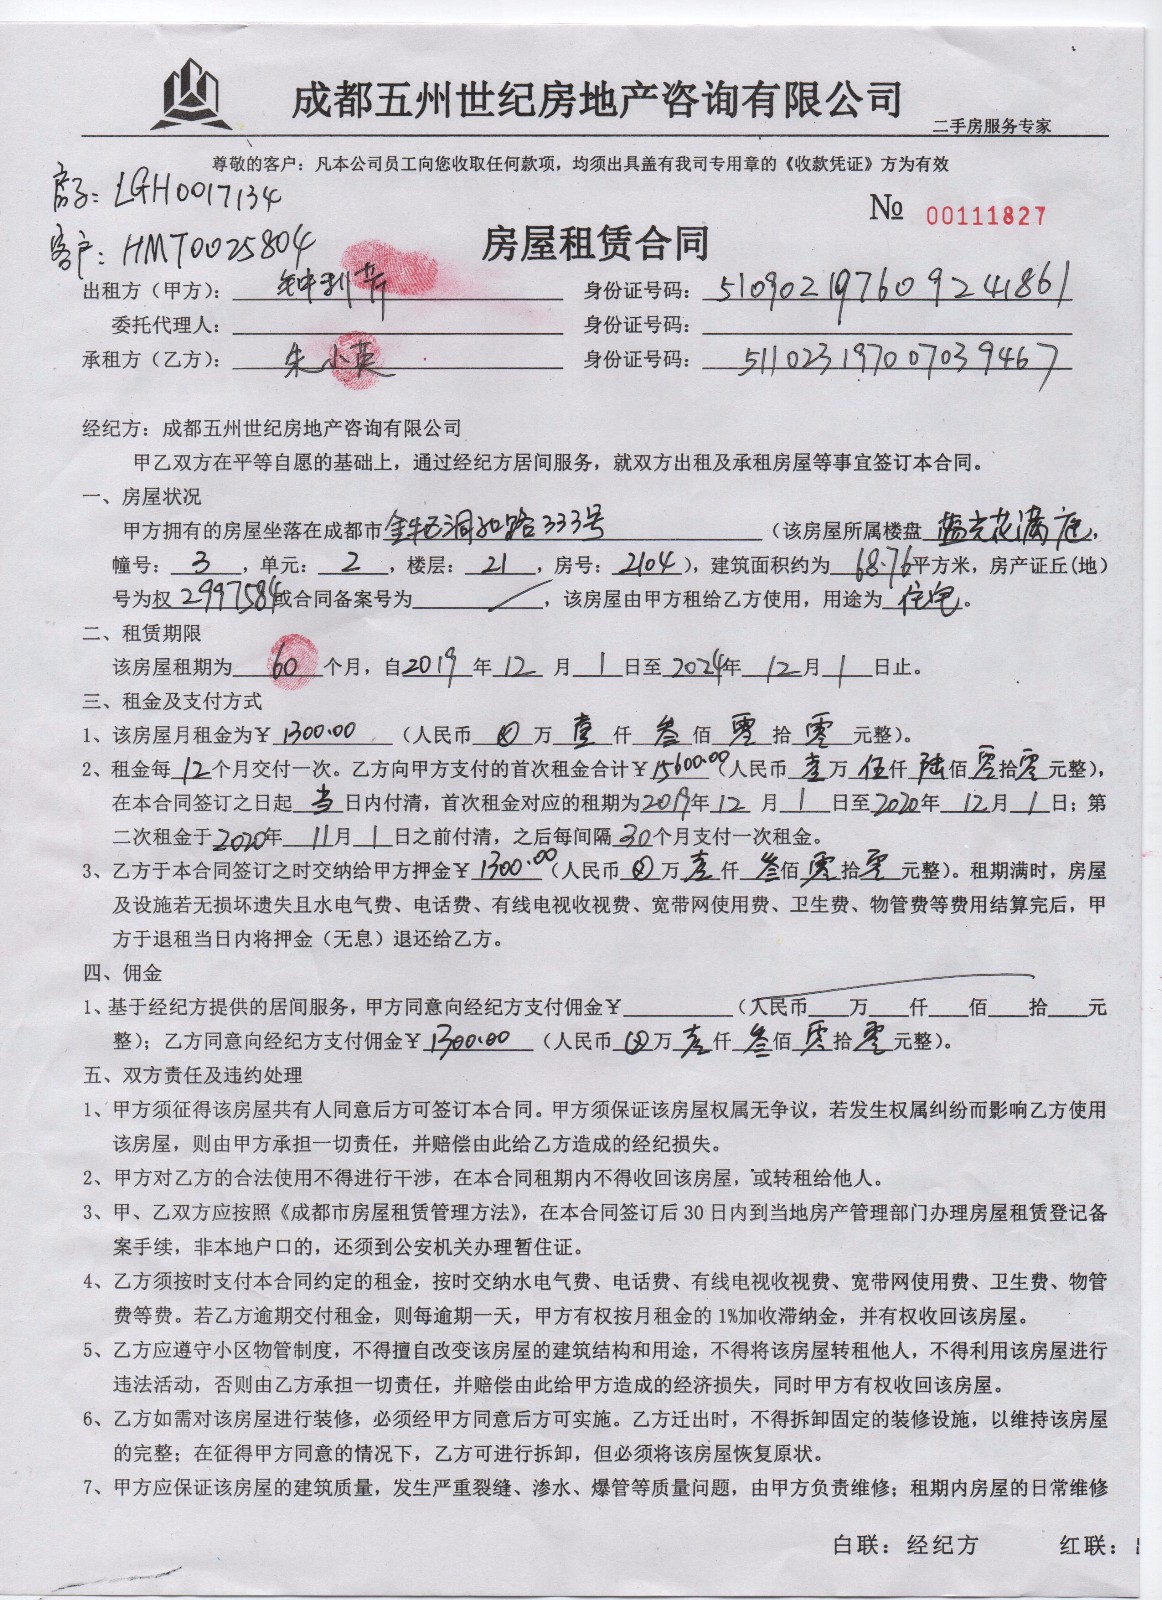 成都五州世纪房地产咨询有限公司
二手房服务专家
尊敬的客户：凡本公司员工向您收取任何款项，均须出具盖有我司专用章的《收款凭证》方为有效
房子：LGH0017134
№ 00111827
客户：HMT0025804
房屋租赁合同
出租方（甲方）：钟利芳 身份证号码：510902197609241861
委托代理人： 身份证号码：
承租方（乙方）：朱小英 身份证号码：511023197007039467
经纪方：成都五州世纪房地产咨询有限公司
甲乙双方在平等自愿的基础上，通过经纪方居间服务，就双方出租及承租房屋等事宜签订本合同。
一、房屋状况
甲方拥有的房屋坐落在成都市金牛区洞子口路333号（该房屋所属楼盘蓝光花满庭，
幢号：3，单元：2，楼层：21，房号：2104），建筑面积约为68.76平方米，房产证丘(地)
号为权2997584或合同备案号为／，该房屋由甲方租给乙方使用，用途为住宅。
二、租赁期限
该房屋租期为60个月，自2019年12月1日至2024年12月1日止。
三、租金及支付方式
1、该房屋月租金为￥1300.00（人民币⊗万壹仟叁佰零拾零元整）。
2、租金每12个月交付一次。乙方向甲方支付的首次租金合计￥15600.00（人民币壹万伍仟陆佰零拾零元整），
在本合同签订之日起当日内付清，首次租金对应的租期为2019年12月1日至2020年12月1日；第
二次租金于2020年11月1日之前付清，之后每间隔30个月支付一次租金。
3、乙方于本合同签订之时交纳给甲方押金￥1300.00（人民币⊗万壹仟叁佰零拾零元整）。租期满时，房屋
及设施若无损坏遗失且水电气费、电话费、有线电视收视费、宽带网使用费、卫生费、物管费等费用结算完后，甲
方于退租当日内将押金（无息）退还给乙方。
四、佣金
1、基于经纪方提供的居间服务，甲方同意向经纪方支付佣金￥（人民币 万 仟 佰 拾 元
整）；乙方同意向经纪方支付佣金￥1300.00（人民币⊗万壹仟叁佰零拾零元整）。
五、双方责任及违约处理
1、甲方须征得该房屋共有人同意后方可签订本合同。甲方须保证该房屋权属无争议，若发生权属纠纷而影响乙方使用
该房屋，则由甲方承担一切责任，并赔偿由此给乙方造成的经纪损失。
2、甲方对乙方的合法使用不得进行干涉，在本合同租期内不得收回该房屋，或转租给他人。
3、甲、乙双方应按照《成都市房屋租赁管理方法》，在本合同签订后30日内到当地房产管理部门办理房屋租赁登记备
案手续，非本地户口的，还须到公安机关办理暂住证。
4、乙方须按时支付本合同约定的租金，按时交纳水电气费、电话费、有线电视收视费、宽带网使用费、卫生费、物管
费等费。若乙方逾期交付租金，则每逾期一天，甲方有权按月租金的1%加收滞纳金，并有权收回该房屋。
5、乙方应遵守小区物管制度，不得擅自改变该房屋的建筑结构和用途，不得将该房屋转租他人，不得利用该房屋进行
违法活动，否则由乙方承担一切责任，并赔偿由此给甲方造成的经济损失，同时甲方有权收回该房屋。
6、乙方如需对该房屋进行装修，必须经甲方同意后方可实施。乙方迁出时，不得拆卸固定的装修设施，以维持该房屋
的完整；在征得甲方同意的情况下，乙方可进行拆卸，但必须将该房屋恢复原状。
7、甲方应保证该房屋的建筑质量，发生严重裂缝、渗水、爆管等质量问题，由甲方负责维修；租期内房屋的日常维修
白联：经纪方 红联：